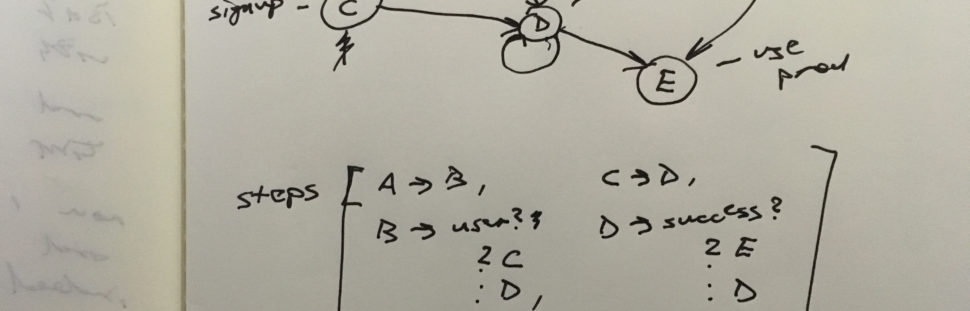 signup - C
D
E - use
prod
steps [ A → B, C → D, ]
B → user? D → success?
? C ? E
: D, : D